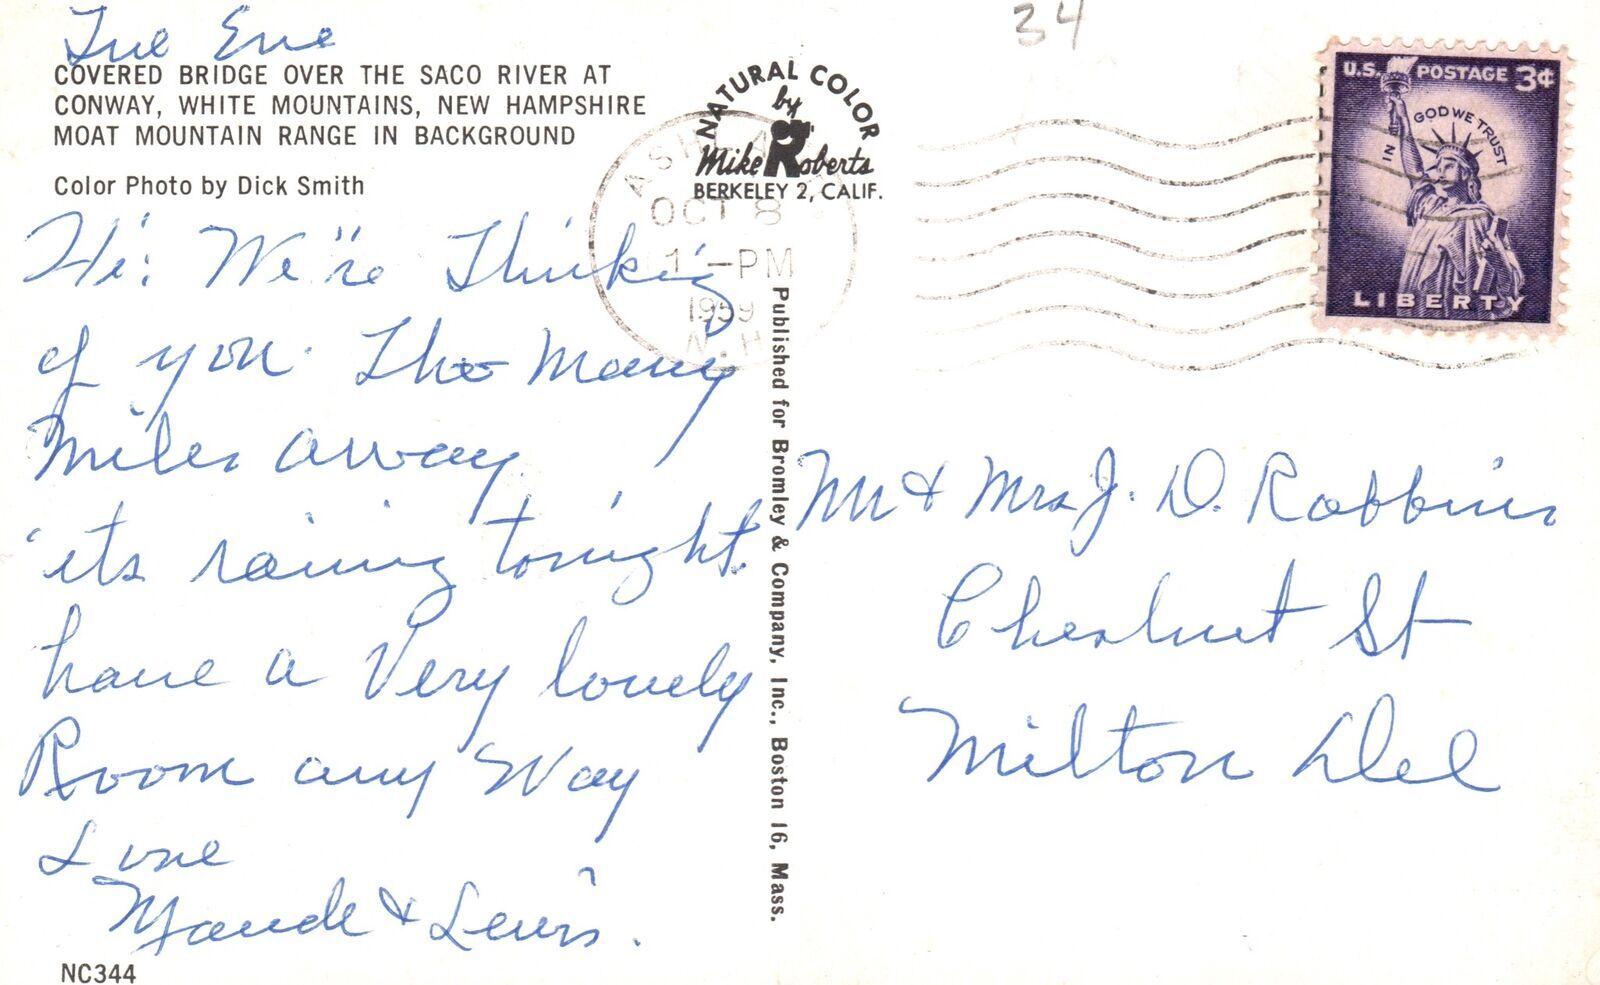 34
Tue Eve
COVERED BRIDGE OVER THE SACO RIVER AT
CONWAY, WHITE MOUNTAINS, NEW HAMPSHIRE
MOAT MOUNTAIN RANGE IN BACKGROUND
Color Photo by Dick Smith
NATURAL COLOR
by
Mike Roberts
BERKELEY 2, CALIF.
OCT 8
1 - PM
1959
N.H.
U.S. POSTAGE 3¢
IN GOD WE TRUST
LIBERTY
Hi: We're Thinking
of you. Tho Many
Miles away.
its raining tonight.
have a Very lovely
Room any Way
Love
Maude & Lewis.
NC344
Published for Bromley & Company, Inc., Boston 16, Mass.
Mr & Mrs J. D. Robbins
Chestnut St
Milton Del